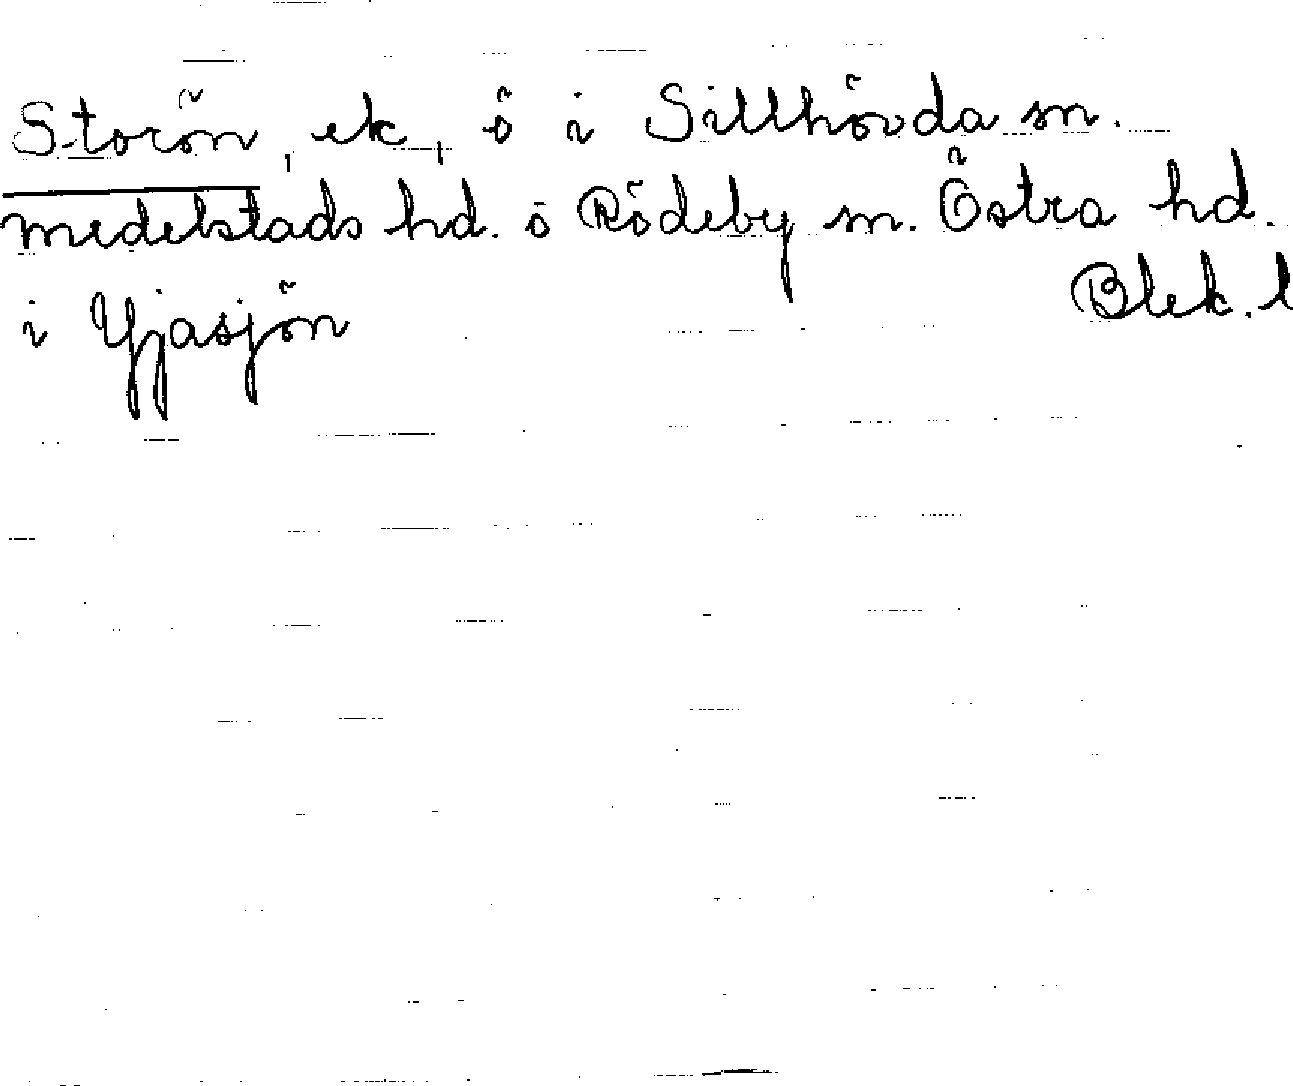 Storön, ek, ö i Sillhövda sn.
medelstads hd. o Rödeby sn. Östra hd.
Blek. l
i Yjasjön